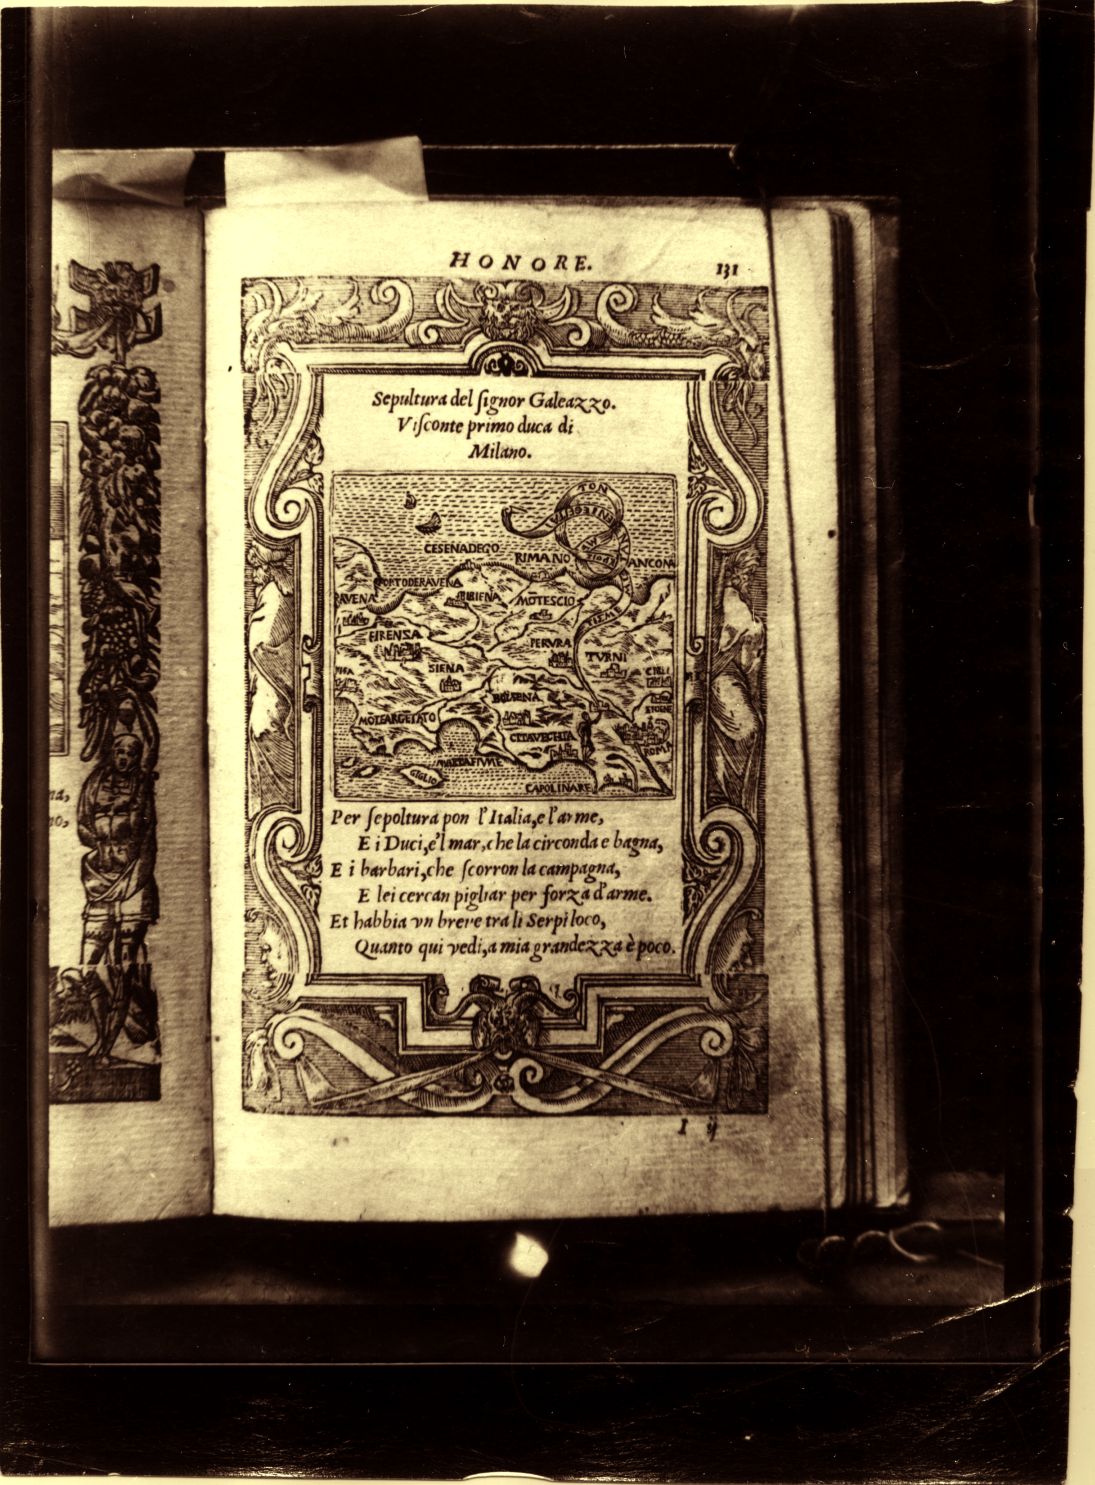 HONORE.
131
Sepultura del ſignor Galeazzo.
Viſconte primo duca di
Milano.
TON
CESENADEGO
RIMANO
ANCONA
PORTODERAVENA
RAVENA
BIBIENA
MOTESCIO
TEVERE
FIRENSA
PERVRA
TVRNI
SIENA
BOLSENA
MOTEARGETATO
CITAVECHIA
ROMA
MARTAFIVME
GIGLIO
CAPOLINARE
Per ſepoltura pon l'Italia, e l'arme,
E i Duci, e'l mar, che la circonda e bagna,
E i barbari, che ſcorron la campagna,
E lei cercan pigliar per forza d'arme.
Et habbia vn breve tra li Serpi loco,
Quanto qui vedi, a mia grandezza è poco.
I ij
na,
no,